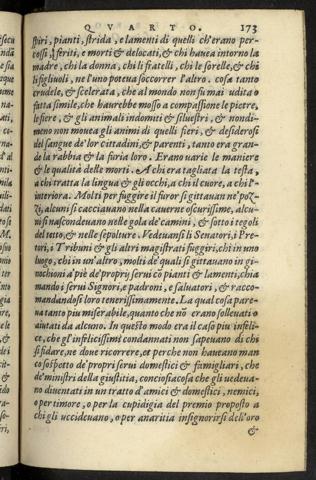 QVARTO. 173
spiri, pianti, strida, e lamenti di quelli ch'erano per-
cossi, feriti, e morti & delocati, & chi havea intorno la
madre, chi la donna, chi li fratelli, & chi le sorelle, & chi
li figliuoli, ne l'uno poteua soccorrer l'altro. cosa tanto
crudele, & scelerata, che al mondo non fu mai udita o
fatta simile, che haurebbe mosso a compassione le pietre,
le fiere, & gli animali indomiti & siluestri, & nondi-
meno non mouea gli animi di quelli fieri, & desiderosi
del sangue de' lor cittadini, & parenti, tanto era gran-
de la rabbia & la furia loro. Erano uarie le maniere
& le qualità delle morti. A chi era tagliata la testa,
a chi tratta la lingua & gli occhi, a chi il cuore, a chi l'in-
teriora. Molti per fuggire il furor si gittauan ne' poz-
zi, alcuni si cacciauano nella cauerne oscurissime, alcu-
ni nascondeuano nelle gola de' camini, & sotto i tegoli
del tetto, & nelle sepolture. Vedeuansi li Senatori, i Pre-
tori, i Tribuni & gli altri magistrati fuggirsi, chi in uno
luogo, chi in un'altro, molti de' quali si gittauano in gi-
nochioni a' piè de' proprij serui cõ pianti & lamenti, chia
mando i serui Signori, e padroni, e saluatori, & racco-
mandandosi loro tenerissimamente. La qual cosa pare-
ua tanto piu miserabile, quanto che nõ erano solleuati o
aiutati da alcuno. In questo modo era il caso piu infeli-
ce, che gl'infelicissimi condannati non sapeuano di chi
si fidare, ne doue ricorrere, et perche non haueano man
co sospetto de' proprij serui domestici & famigliari, che
de' ministri della giustitia, conciosiacosa che gli uedeua-
no diuentati in un tratto d'amici & domestici, nemici,
o per timore, o per la cupidigia del premio proposto a
chi gli uccideuano, o per auaritia insignorirsi dell'oro
&